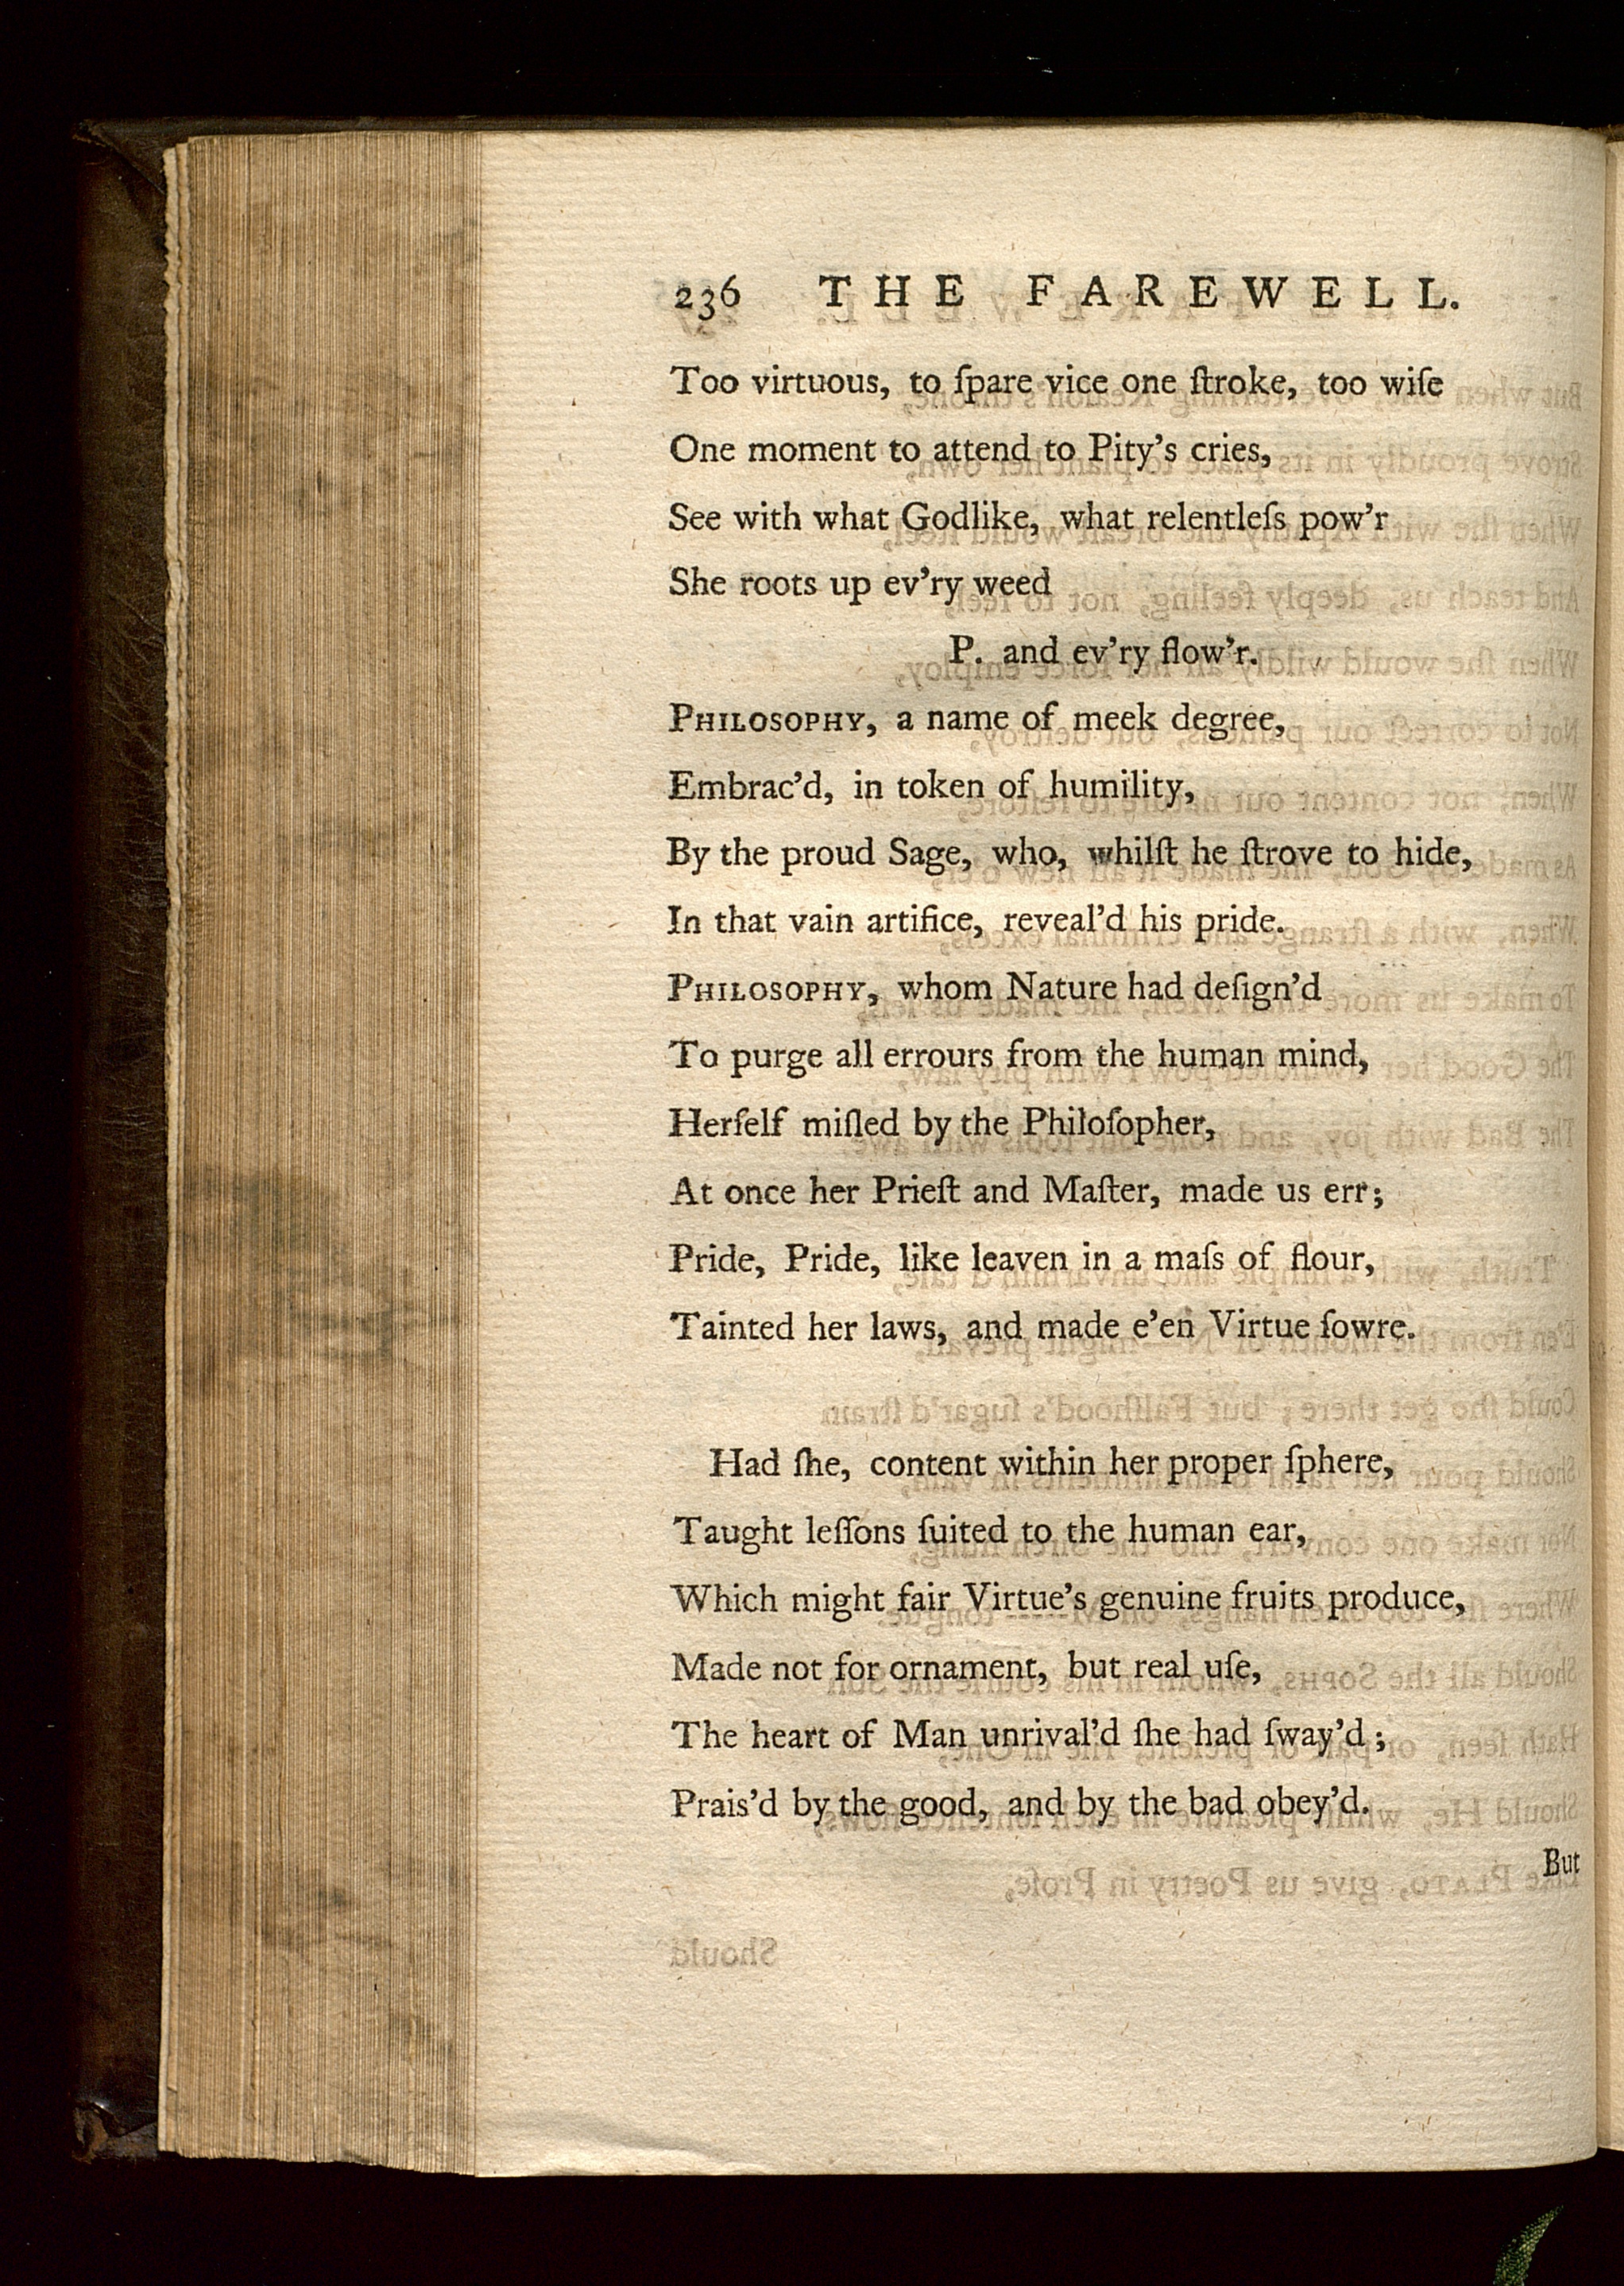 236 THE FAREWELL.
Too virtuous, to ſpare vice one ſtroke, too wiſe
One moment to attend to Pity's cries,
See with what Godlike, what relentleſs pow'r
She roots up ev'ry weed
P. and ev'ry flow'r.
PHILOSOPHY, a name of meek degree,
Embrac'd, in token of humility,
By the proud Sage, who, whilſt he ſtrove to hide,
In that vain artifice, reveal'd his pride.
PHILOSOPHY, whom Nature had deſign'd
To purge all errours from the human mind,
Herſelf miſled by the Philoſopher,
At once her Prieſt and Maſter, made us err;
Pride, Pride, like leaven in a maſs of flour,
Tainted her laws, and made e'en Virtue ſowre.
Had ſhe, content within her proper ſphere,
Taught leſſons ſuited to the human ear,
Which might fair Virtue's genuine fruits produce,
Made not for ornament, but real uſe,
The heart of Man unrival'd ſhe had ſway'd;
Prais'd by the good, and by the bad obey'd.
But